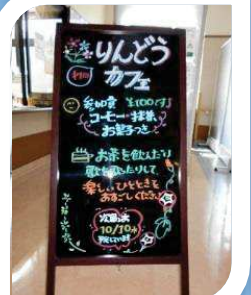 りんどう
カフェ
参加費 ¥100(す)
コーヒー・抹茶
お菓子つき♪
お茶を飲んだり
歌を歌ったりして
楽しいひとときを
おすごしください
次回は
10/10㈫